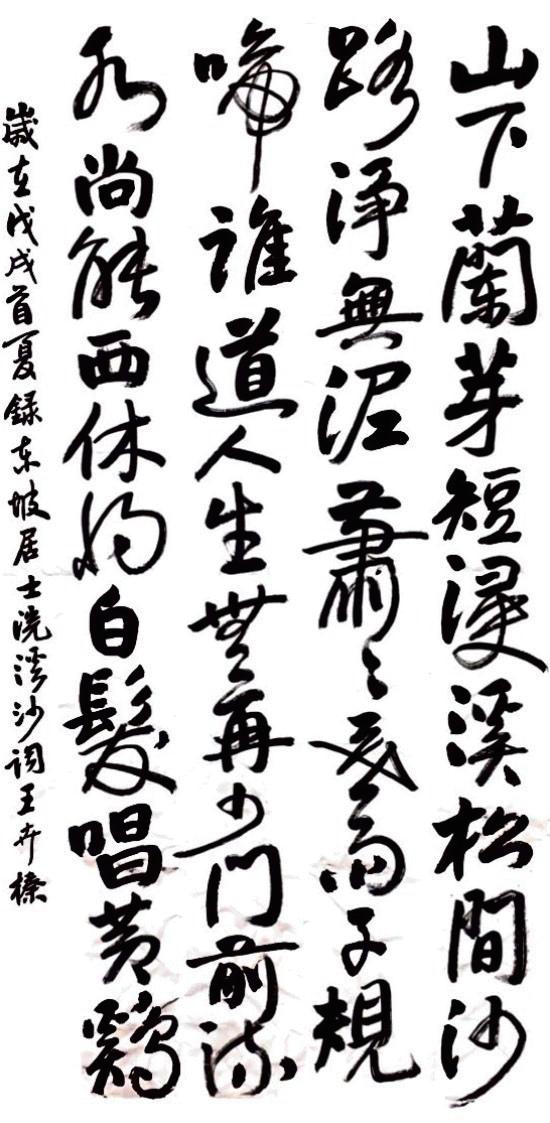 山下蘭芽短浸溪松間沙
路淨無泥蕭々暮雨子規
啼誰道人生無再少門前流
水尚能西休將白髮唱黃鷄
歲在戊戌首夏録东坡居士浣溪沙詞王卉榛